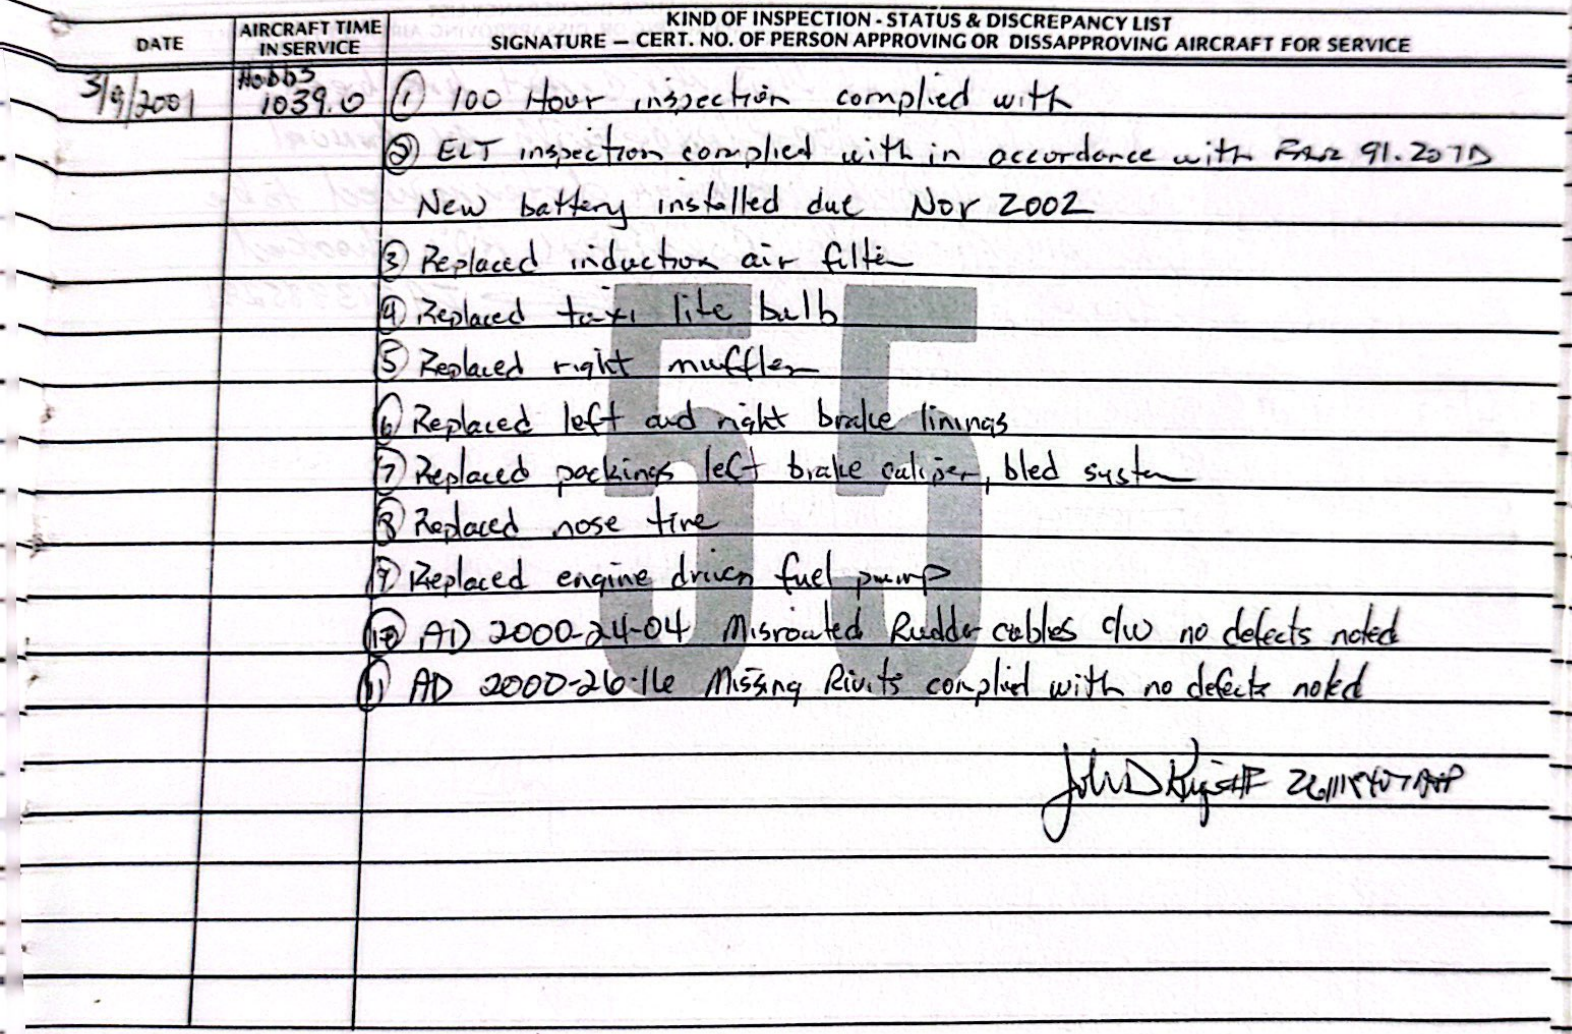 KIND OF INSPECTION - STATUS & DISCREPANCY LIST
DATE AIRCRAFT TIME IN SERVICE SIGNATURE — CERT. NO. OF PERSON APPROVING OR DISSAPPROVING AIRCRAFT FOR SERVICE
3/9/2001 Hobbs 1039.0 ① 100 Hour inspection complied with
② ELT inspection complied with in accordance with FAR 91.207D
New battery installed due Nov 2002
③ Replaced induction air filter
④ Replaced taxi lite bulb
⑤ Replaced right muffler
⑥ Replaced left and right brake linings
⑦ Replaced packings left brake caliper, bled system
⑧ Replaced nose tire
⑨ Replaced engine driven fuel pump
⑩ AD 2000-24-04 Misrouted Rudder cables c/w no defects noted
⑪ AD 2000-26-16 Missing Rivits complied with no defects noted
John D
55